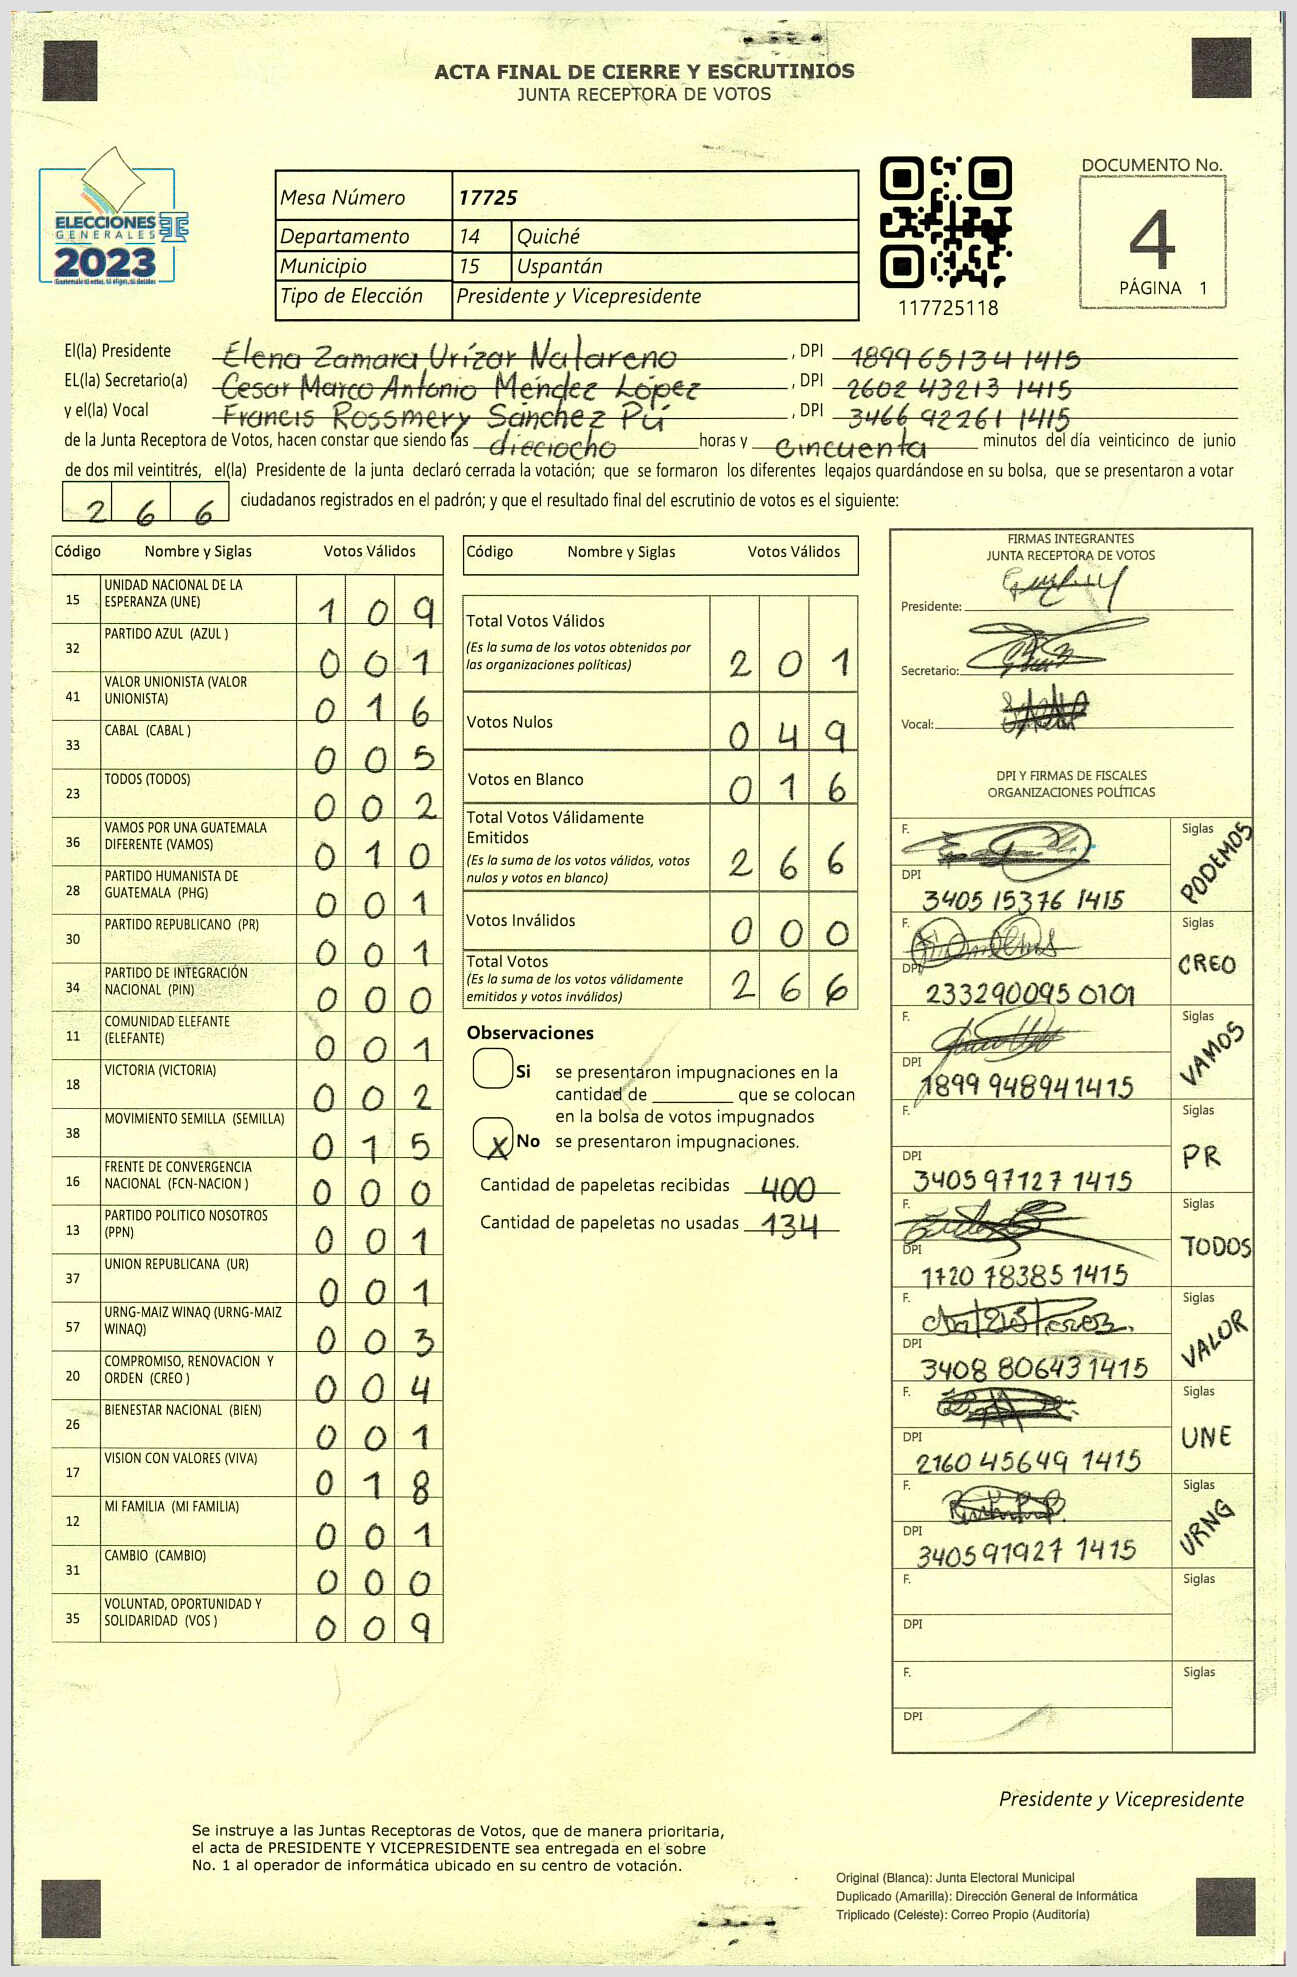 ACTA FINAL DE CIERRE Y ESCRUTINIOS
JUNTA RECEPTORA DE VOTOS
ELECCIONES
GENERALES
2023
Mesa Número 17725
Departamento 14 Quiché
Municipio 15 Uspantán
Tipo de Elección Presidente y Vicepresidente
117725118
DOCUMENTO No.
4
PÁGINA 1
El(la) Presidente Elena Zamara Urízar Natareno , DPI 1899 65134 1415
EL(la) Secretario(a) Cesar Marco Antonio Méndez López , DPI 2602 43213 1415
y el(la) Vocal Francis Rossmery Sánchez Pú , DPI 3466 92261 1415
de la Junta Receptora de Votos, hacen constar que siendo las dieciocho horas y cincuenta minutos del día veinticinco de junio
de dos mil veintitrés, el(la) Presidente de la junta declaró cerrada la votación; que se formaron los diferentes legajos guardándose en su bolsa, que se presentaron a votar
266 ciudadanos registrados en el padrón; y que el resultado final del escrutinio de votos es el siguiente:
Código Nombre y Siglas Votos Válidos
15 UNIDAD NACIONAL DE LA ESPERANZA (UNE) 109
32 PARTIDO AZUL (AZUL ) 001
41 VALOR UNIONISTA (VALOR UNIONISTA) 016
33 CABAL (CABAL ) 005
23 TODOS (TODOS) 002
36 VAMOS POR UNA GUATEMALA DIFERENTE (VAMOS) 010
28 PARTIDO HUMANISTA DE GUATEMALA (PHG) 001
30 PARTIDO REPUBLICANO (PR) 001
34 PARTIDO DE INTEGRACIÓN NACIONAL (PIN) 000
11 COMUNIDAD ELEFANTE (ELEFANTE) 001
18 VICTORIA (VICTORIA) 002
38 MOVIMIENTO SEMILLA (SEMILLA) 015
16 FRENTE DE CONVERGENCIA NACIONAL (FCN-NACION ) 000
13 PARTIDO POLITICO NOSOTROS (PPN) 001
37 UNION REPUBLICANA (UR) 001
57 URNG-MAIZ WINAQ (URNG-MAIZ WINAQ) 003
20 COMPROMISO, RENOVACION Y ORDEN (CREO ) 004
26 BIENESTAR NACIONAL (BIEN) 001
17 VISION CON VALORES (VIVA) 018
12 MI FAMILIA (MI FAMILIA) 001
31 CAMBIO (CAMBIO) 000
35 VOLUNTAD, OPORTUNIDAD Y SOLIDARIDAD (VOS ) 009
Código Nombre y Siglas Votos Válidos
Total Votos Válidos 201
(Es la suma de los votos obtenidos por
las organizaciones políticas)
Votos Nulos 049
Votos en Blanco 016
Total Votos Válidamente
Emitidos 266
(Es la suma de los votos válidos, votos
nulos y votos en blanco)
Votos Inválidos 000
Total Votos 266
(Es la suma de los votos válidamente
emitidos y votos inválidos)
Observaciones
Si se presentaron impugnaciones en la
cantidad de ________ que se colocan
en la bolsa de votos impugnados
X No se presentaron impugnaciones.
Cantidad de papeletas recibidas 400
Cantidad de papeletas no usadas 134
FIRMAS INTEGRANTES
JUNTA RECEPTORA DE VOTOS
Presidente:
Secretario:
Vocal:
DPI Y FIRMAS DE FISCALES
ORGANIZACIONES POLÍTICAS
F. Siglas PODEMOS
DPI 3405 15376 1415
F. Siglas CREO
DPI 233290095 0101
F. Siglas VAMOS
DPI 1899 94894 1415
F. Siglas PR
DPI 3405 97127 1415
F. Siglas TODOS
DPI 1720 78385 1415
F. Siglas VALOR
DPI 3408 80643 1415
F. Siglas UNE
DPI 2160 45649 1415
F. Siglas URNG
DPI 3405 91927 1415
F. Siglas
DPI
F. Siglas
DPI
Presidente y Vicepresidente
Se instruye a las Juntas Receptoras de Votos, que de manera prioritaria,
el acta de PRESIDENTE Y VICEPRESIDENTE sea entregada en el sobre
No. 1 al operador de informática ubicado en su centro de votación.
Original (Blanca): Junta Electoral Municipal
Duplicado (Amarilla): Dirección General de Informática
Triplicado (Celeste): Correo Propio (Auditoría)